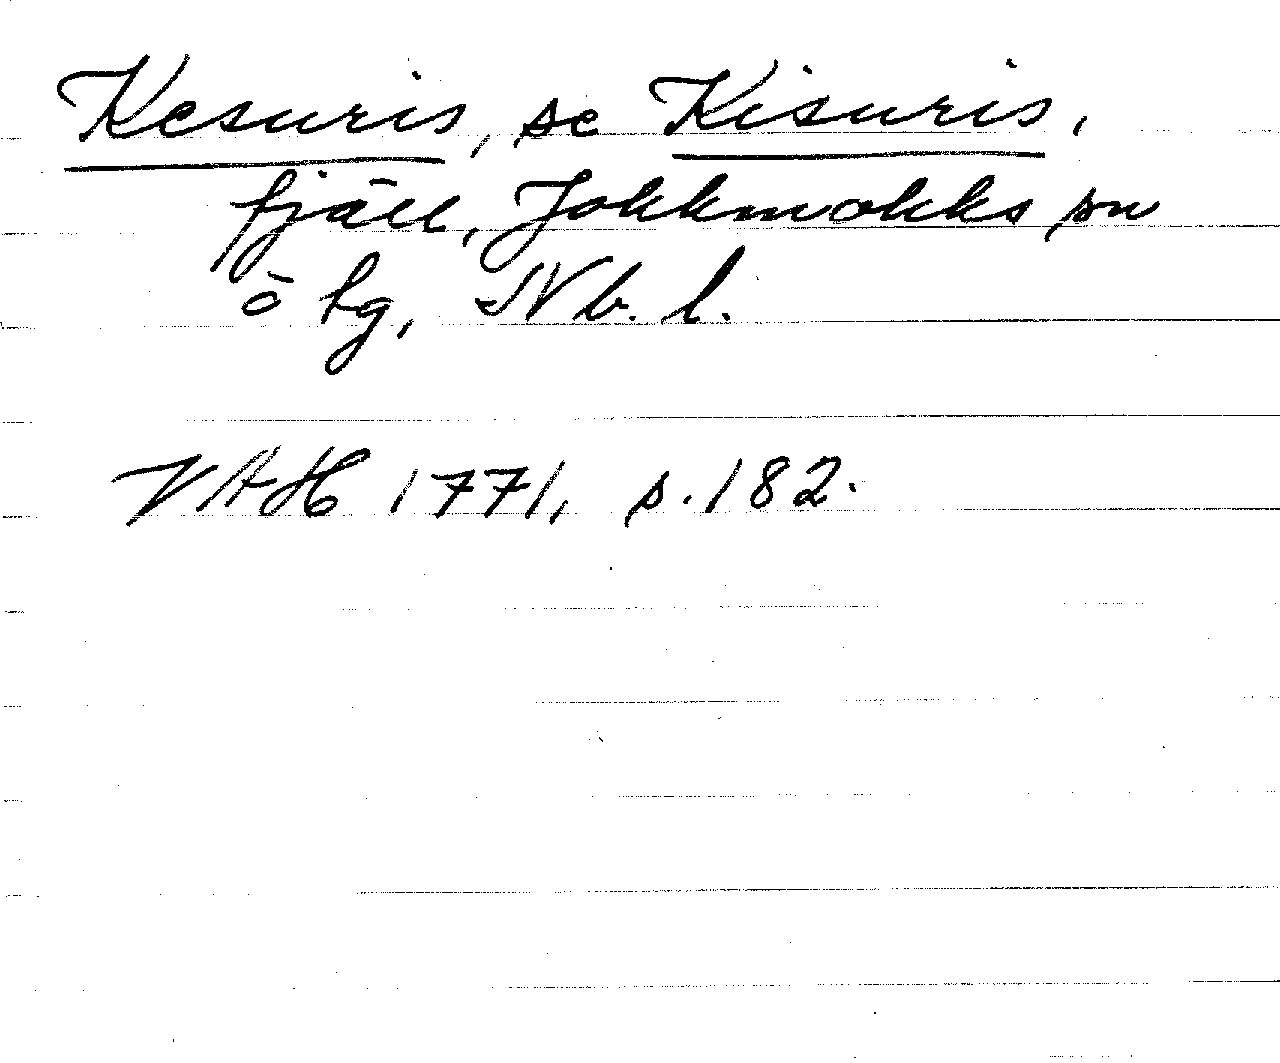 Kesuris, se Kisuris,
fjäll, Jokkmokks sn
o hg, Nb. l.
VAH 1771, s. 182.